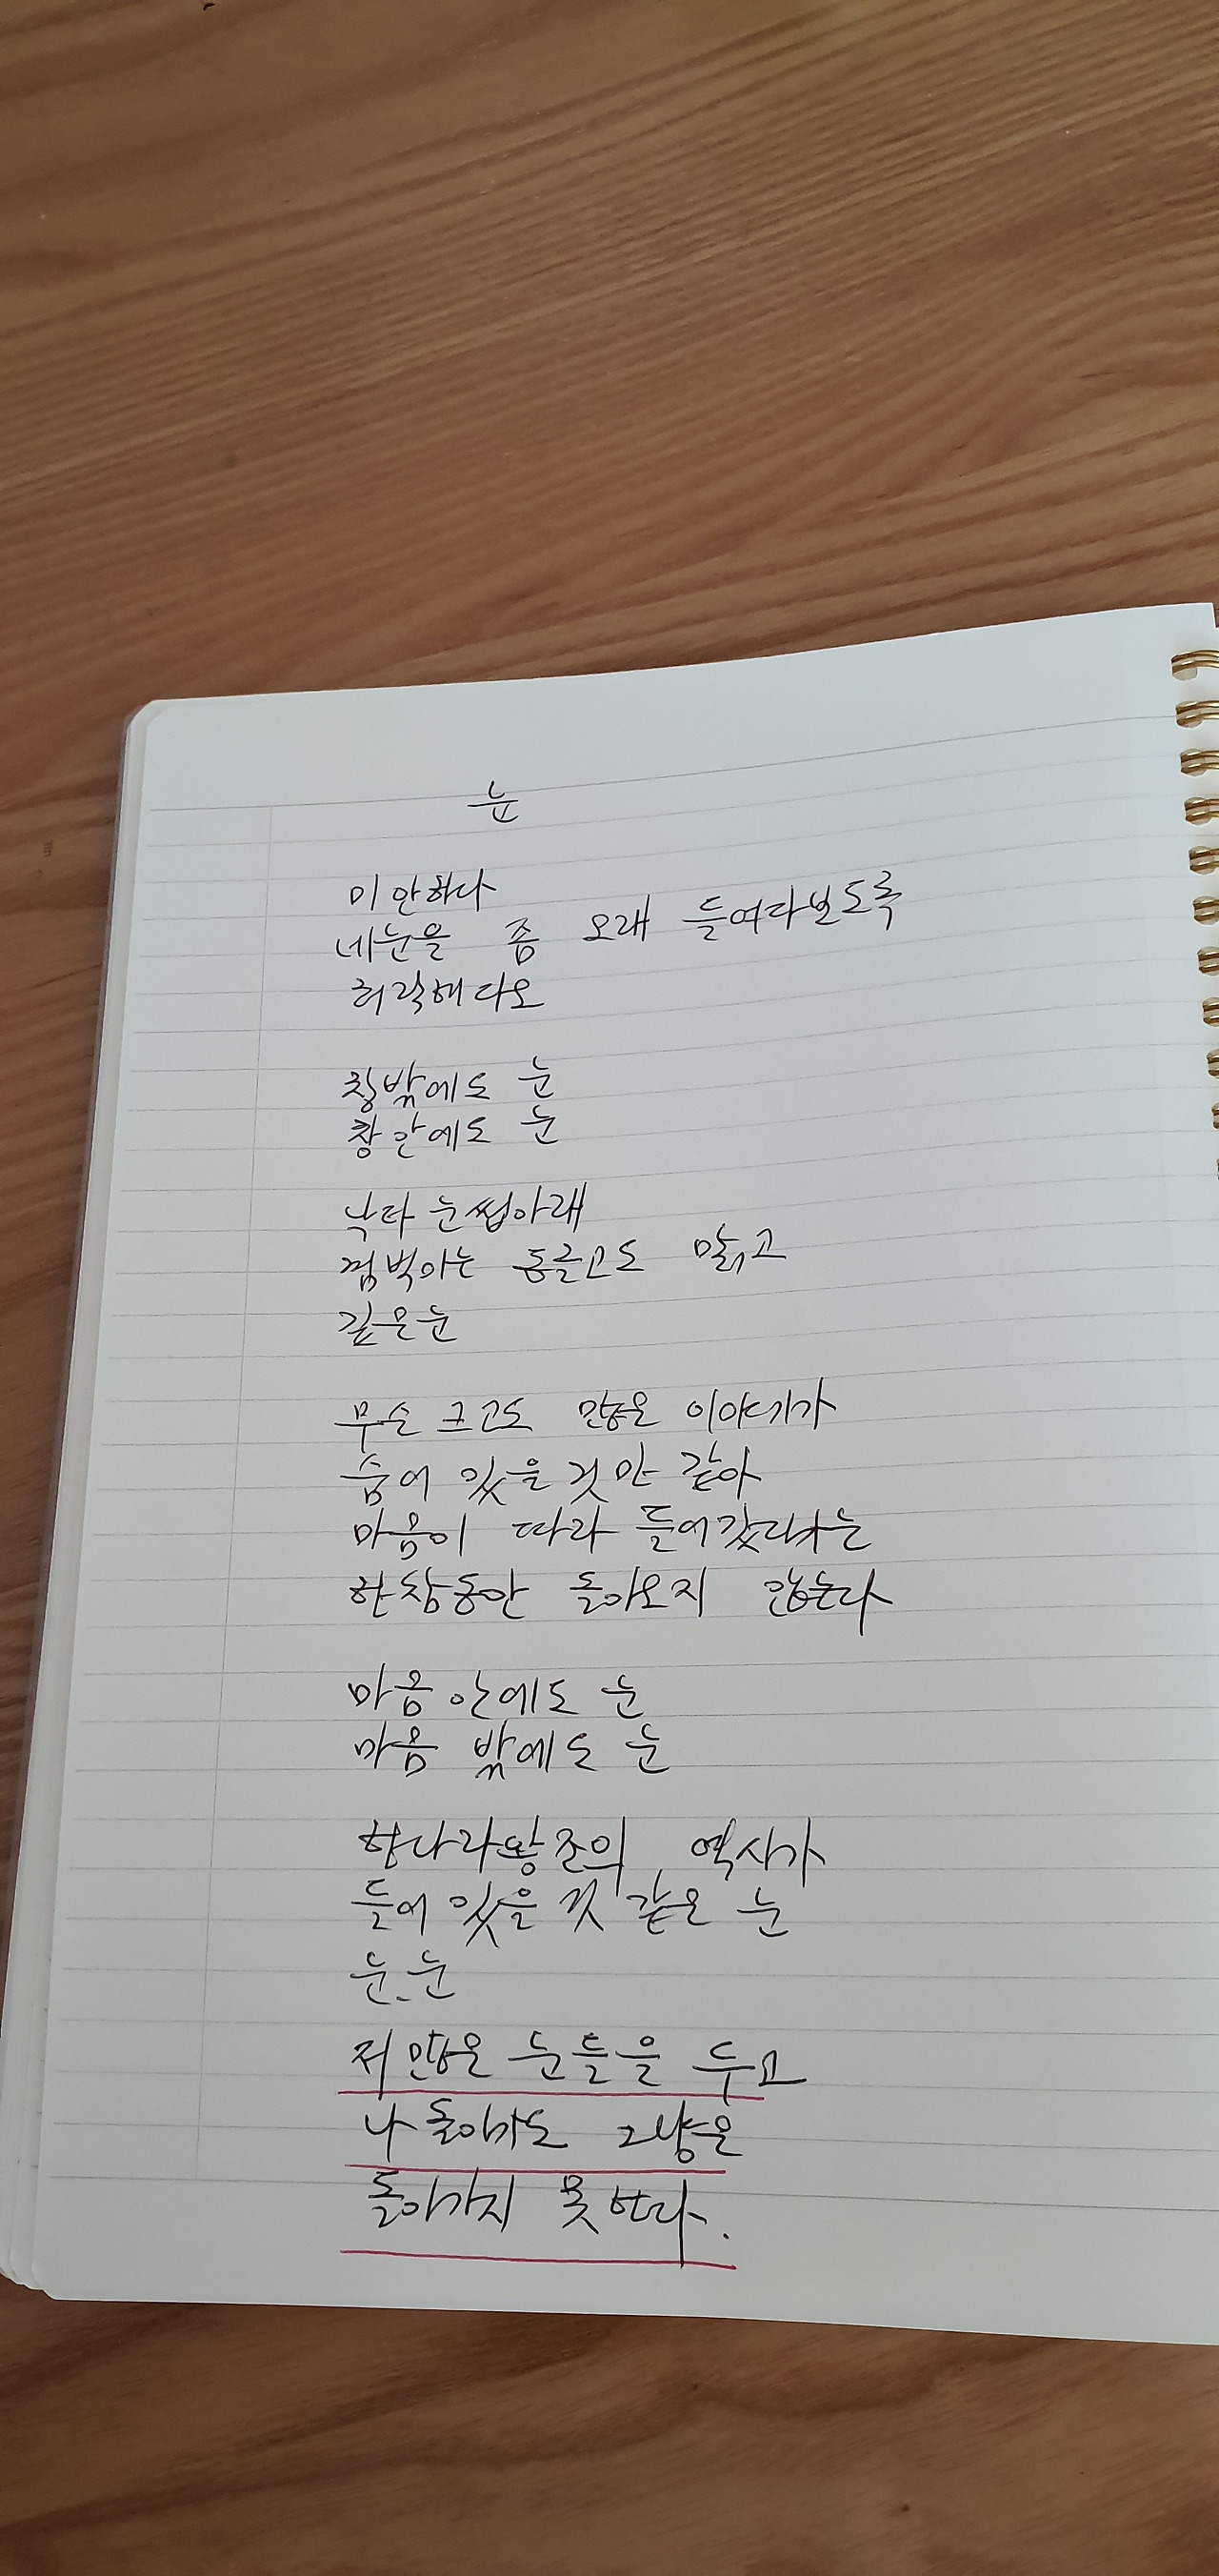 눈
미안하다
네눈을 좀 오래 들여다보도록
허락해다오
창밖에도 눈
창안에도 눈
낙타 눈썹아래
껌벅이는 둥글고도 맑고
깊은눈
무슨 크고도 많은 이야기가
숨어 있을것만 같아
마음이 따라 들어갔다가는
한참동안 돌아오지 않는다
마음 안에도 눈
마음 밖에도 눈
한나라왕조의 역사가
들어 있을 것 같은 눈
눈.눈
저 많은 눈들을 두고
나 돌아가도 그냥은
돌아가지 못한다.